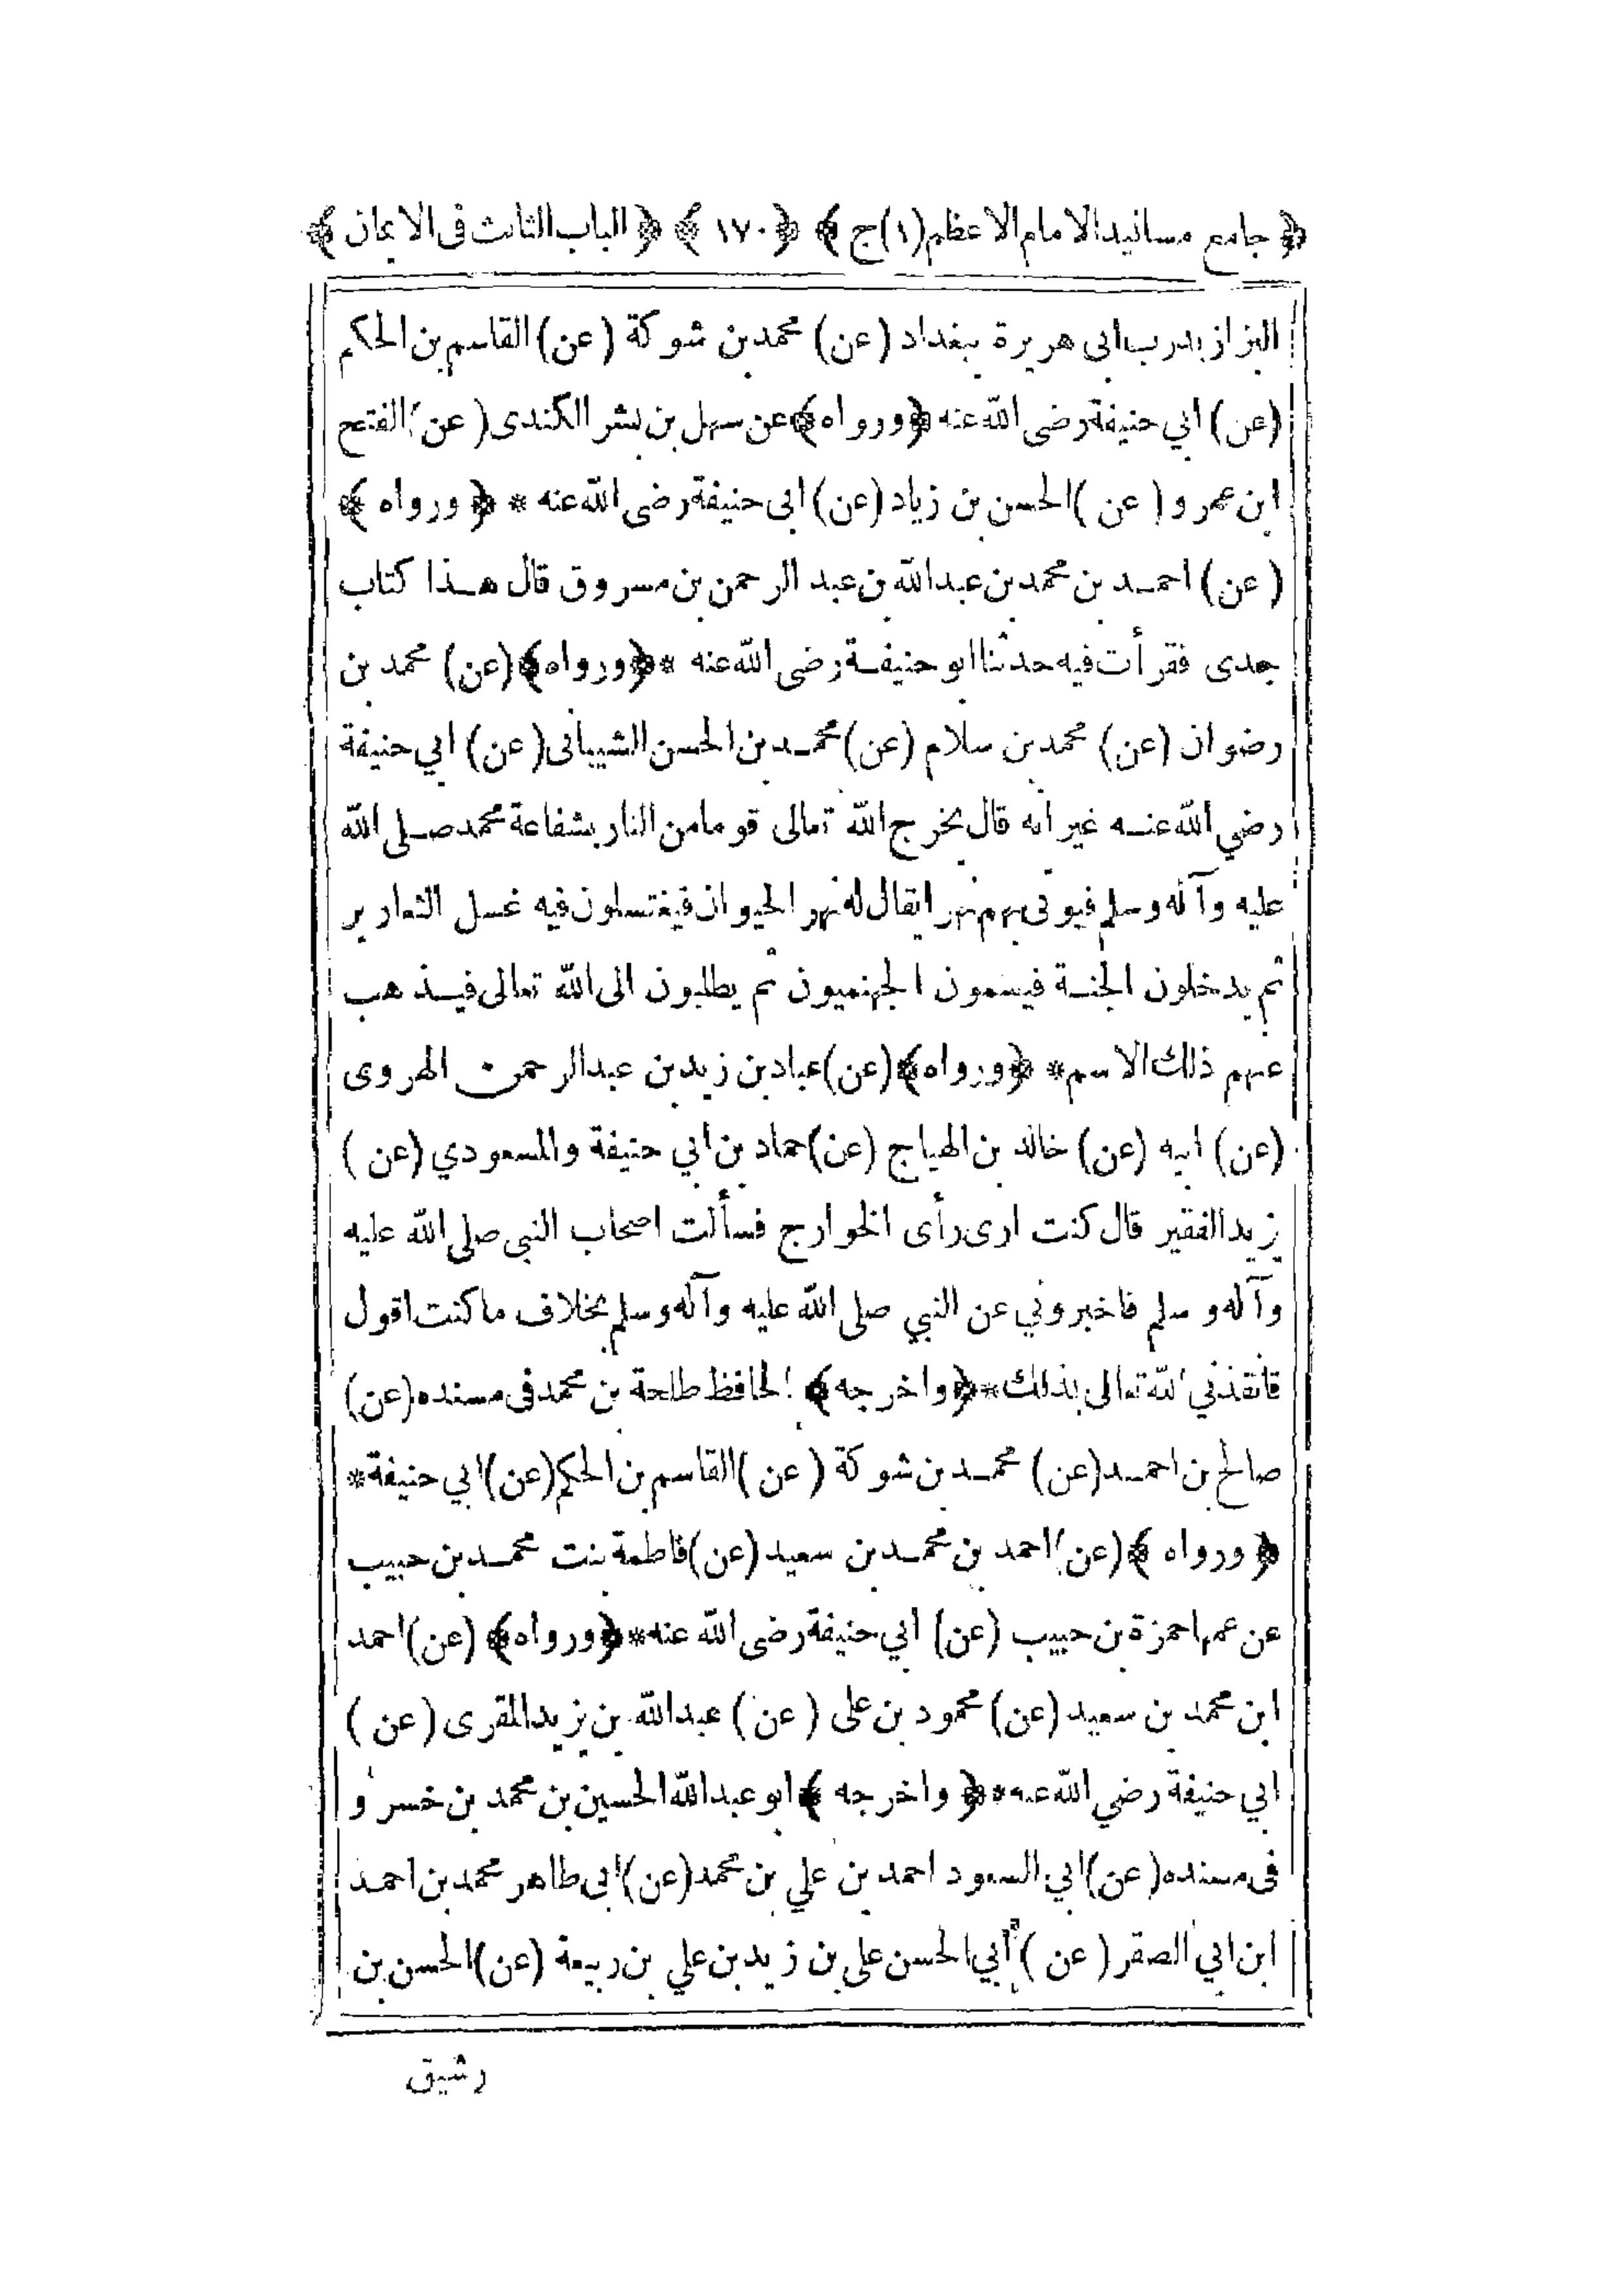 ﴿ جامع مسانيد الامام الاعظم (١) ج ﴾ ﴿ ١٧٠ ﴾ ﴿ الباب الثالث فى الايمان ﴾
البزاز بدرب ابى هريرة ببغداد (عن) محمد بن شوكة (عن) القاسم بن الحكم
(عن) ابي حنيفة رضى الله عنه ﴿ ورواه ﴾ عن سهل بن بشر الكندى (عن) الفتح
ابن عمرو (عن) الحسن بن زياد (عن) ابى حنيفة رضى الله عنه * ﴿ ورواه ﴾
(عن) احمد بن محمد بن عبدالله بن عبد الرحمن بن مسروق قال هذا كتاب
جدى فقرأت فيه حدثنا ابو حنيفة رضى الله عنه * ﴿ ورواه ﴾ (عن) محمد بن
رضوان (عن) محمد بن سلام (عن) محمد بن الحسن الشيبانى (عن) ابي حنيفة
رضي الله عنه غير انه قال يخرج الله تعالى قوما من النار بشفاعة محمد صلى الله
عليه وآله وسلم فيوتى بهم نهرا يقال له نهر الحيوان فيغتسلون فيه غسل الثعارير
ثم يدخلون الجنة فيسمون الجهنميون ثم يطلبون الى الله تعالى فيذهب
عنهم ذلك الاسم * ﴿ ورواه ﴾ (عن) عباد بن زيد بن عبدالرحمن الهروى
(عن) ابيه (عن) خالد بن الهياج (عن) حماد بن ابي حنيفة والمسعودي (عن)
يزيد الفقير قال كنت ارى رأى الخوارج فسألت اصحاب النبي صلى الله عليه
وآله وسلم فاخبروني عن النبي صلى الله عليه وآله وسلم بخلاف ما كنت اقول
فانقذني الله تعالى بذلك * ﴿ واخرجه ﴾ الحافظ طلحة بن محمد فى مسنده (عن)
صالح بن احمد (عن) محمد بن شوكة (عن) القاسم بن الحكم (عن) ابي حنيفة *
﴿ ورواه ﴾ (عن) احمد بن محمد بن سعيد (عن) فاطمة بنت محمد بن حبيب
عن عمها حمزة بن حبيب (عن) ابي حنيفة رضى الله عنه * ﴿ ورواه ﴾ (عن) احمد
ابن محمد بن سعيد (عن) محمود بن على (عن) عبدالله بن يزيد المقرى (عن)
ابي حنيفة رضي الله عنه * ﴿ واخرجه ﴾ ابو عبدالله الحسين بن محمد بن خسرو
فى مسنده (عن) ابي السعود احمد بن علي بن محمد (عن) ابى طاهر محمد بن احمد
ابن ابي الصقر (عن) أبي الحسن على بن زيد بن علي بن ربيعة (عن) الحسن بن
رشيق